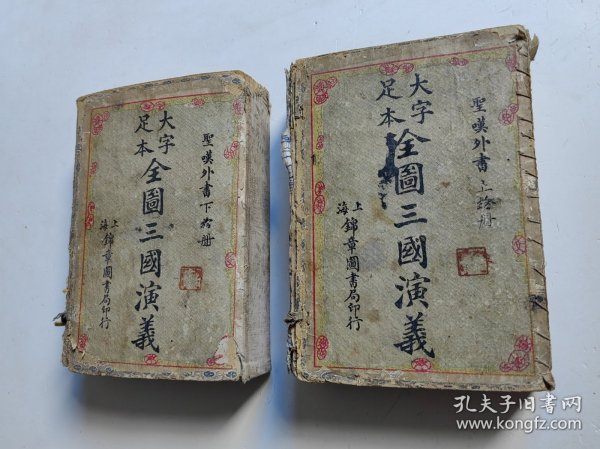 聖嘆外書下拾册
大字
足本
全圖三國演義
上海
錦章圖書局印行
聖嘆外書上拾册
大字
足本
全圖三國演義
上海
錦章圖書局印行
孔夫子旧书网
www.kongfz.com